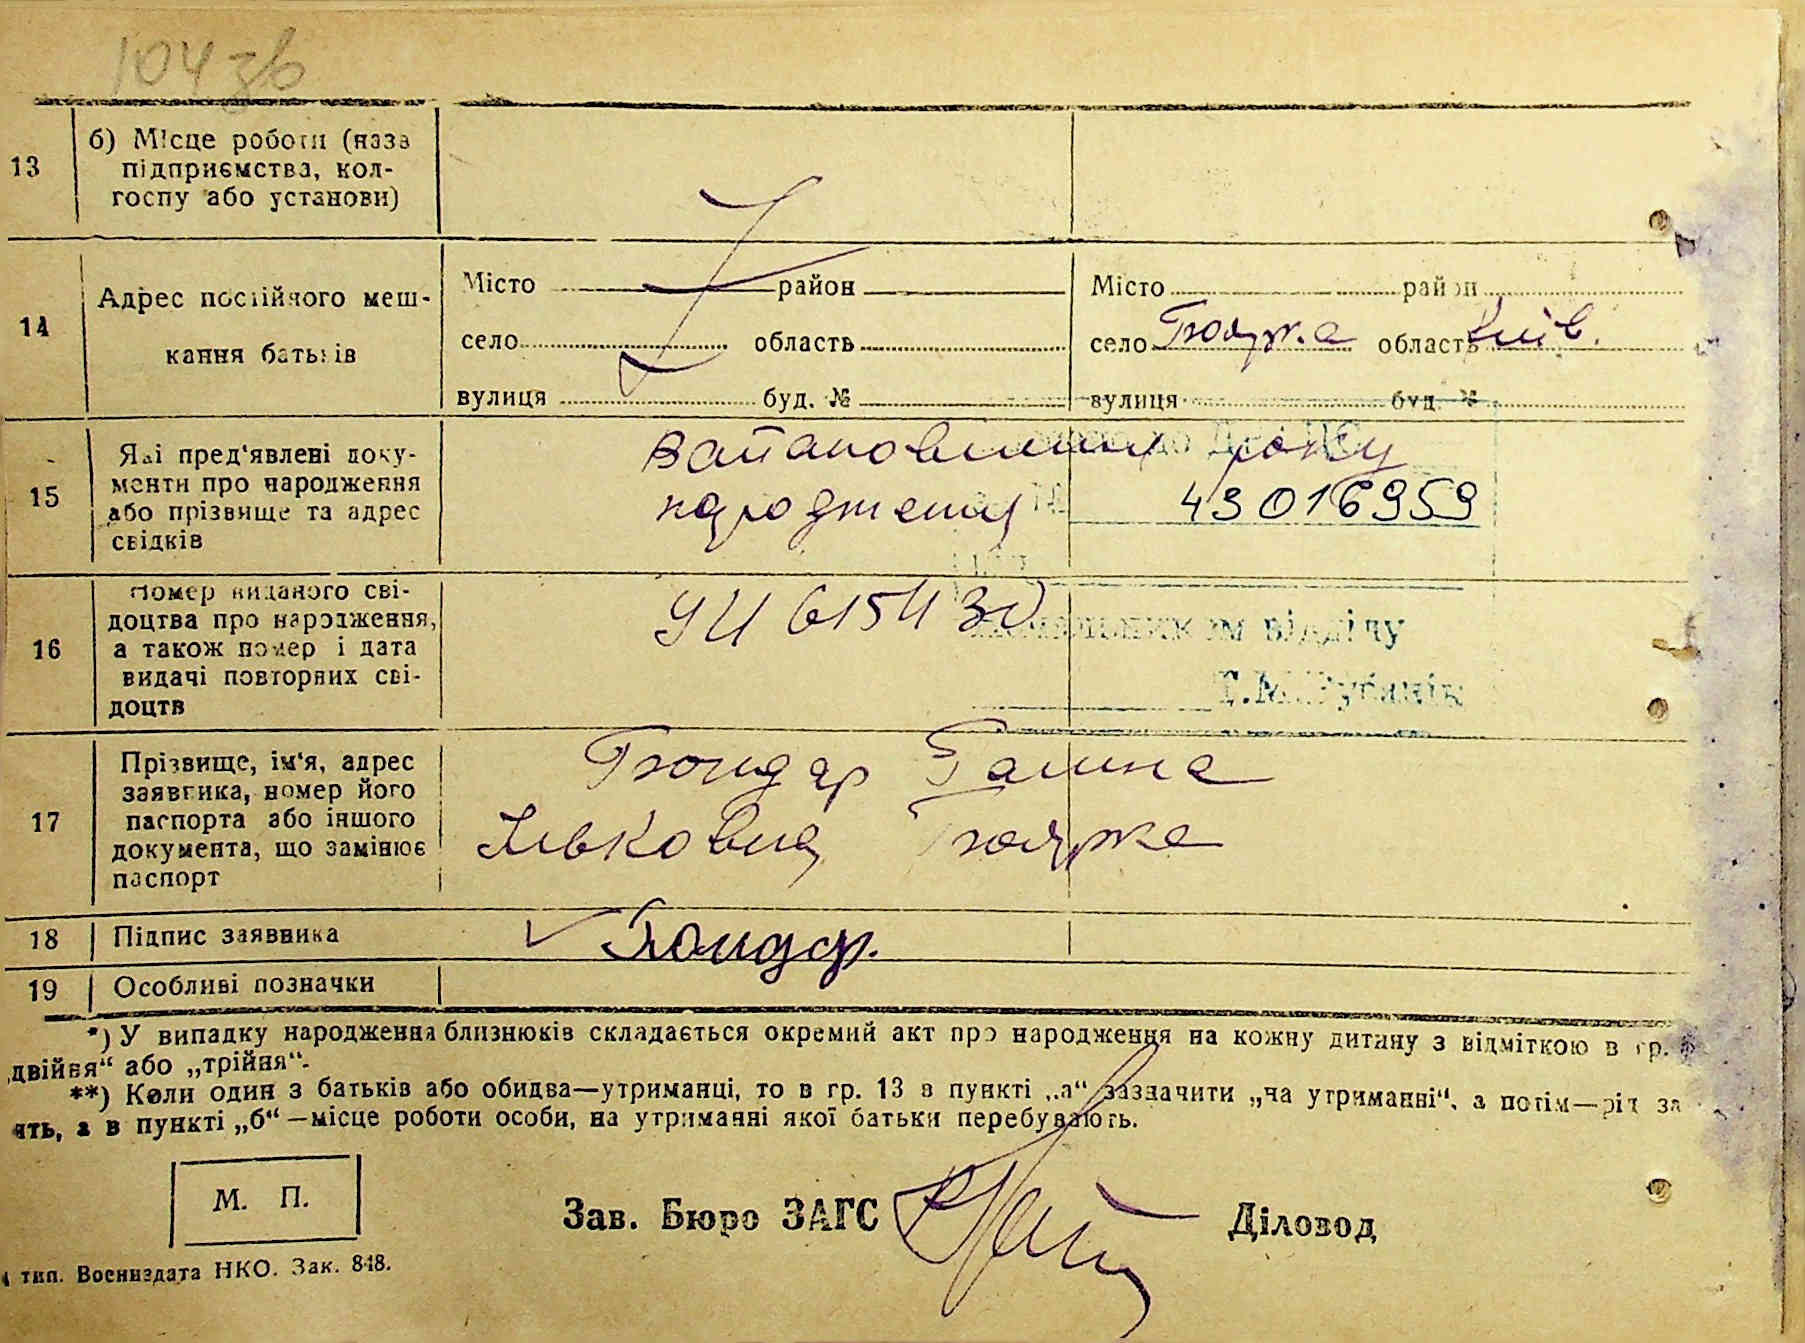 104 зв
13
б) Місце роботи (назва
підприємства, кол-
госпу або установи)
14
Адрес постійного меш-
кання батьків
Місто район
село область
вулиця буд. №
Місто район
село Боярка область Київ.
вулиця буд. №
15
Які пред'явлені доку-
менти про народження
або прізвище та адрес
свідків
року
народження 43016959
16
Номер виданого сві-
доцтва про народження,
а також номер і дата
видачі повторних сві-
доцтв
УЧ 615430
відділу
17
Прізвище, ім'я, адрес
заявника, номер його
паспорта або іншого
документа, що замінює
паспорт
Бондар Галина
Ільковна Боярка
18 Підпис заявника Бондар.
19 Особливі позначки
*) У випадку народження близнюків складається окремий акт про народження на кожну дитину з відміткою в гр.
„двійня“ або „трійня“.
**) Коли один з батьків або обидва—утриманці, то в гр. 13 в пункті „а“ зазначити „на утриманні“, а потім—рід за
ять, а в пункті „б“—місце роботи особи, на утриманні якої батьки перебувають.
М. П.
Зав. Бюро ЗАГС Діловод
тип. Воениздата НКО. Зак. 848.